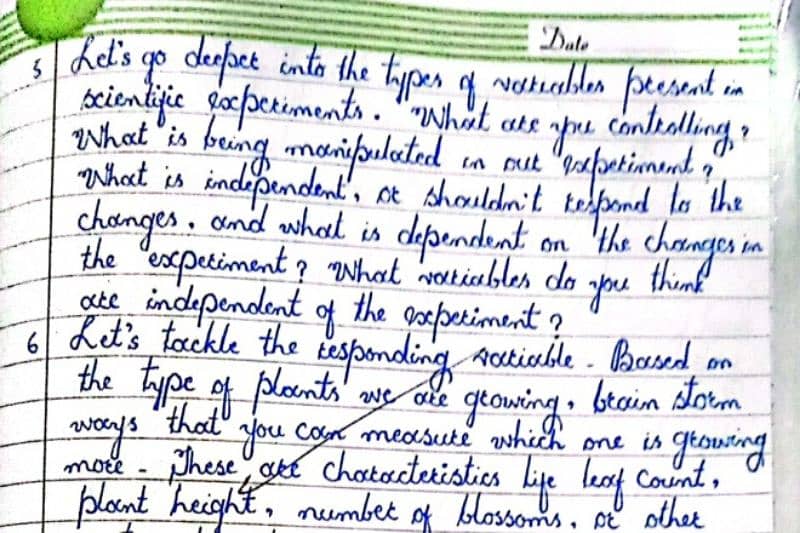 Date
5 Let's go deeper into the types of variables present in
scientific experiments. What are you controlling?
What is being manipulated in our experiment?
What is independent, or shouldn't respond to the
changes, and what is dependent on the changes in
the experiment? What variables do you think
are independent of the experiment?
6 Let's tackle the responding variable. Based on
the type of plants we are growing, brain storm
ways that you can measure which one is growing
more - These are characteristics life leaf count,
plant height, number of blossoms, or other